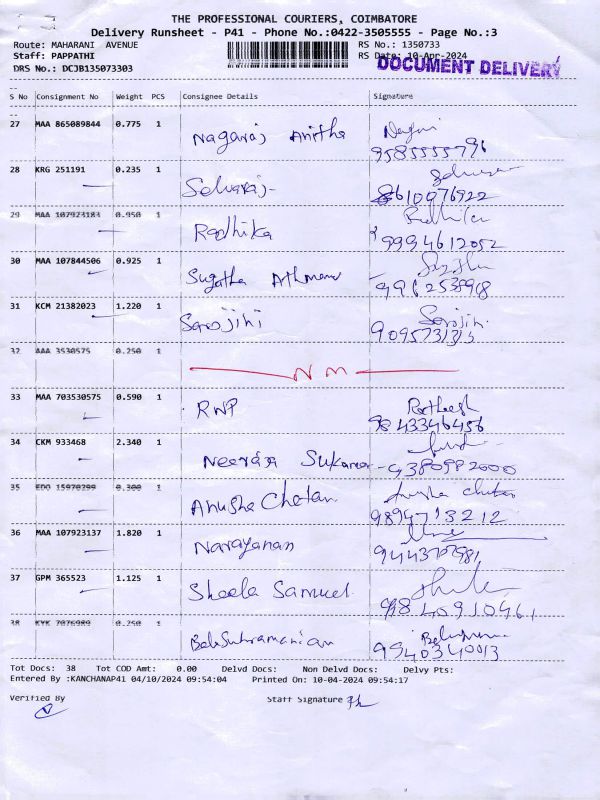 THE PROFESSIONAL COURIERS, COIMBATORE
Delivery Runsheet - P41 - Phone No.:0422-3505555 - Page No.:3
Route: MAHARANI AVENUE
RS No.: 1350733
Staff: PAPPATHI
RS Date: 10-Apr-2024
DRS No.: DCJB135073303
DOCUMENT DELIVERY
S No Consignment No Weight PCS Consignee Details Signature
27 MAA 865089844 0.775 1 Nagaraj Anitha
9585555796
28 KRG 251191 0.235 1 Selvaraj
8610976922
29 MAA 107923183 0.950 1 Radhika Radhika
9994612052
30 MAA 107844506 0.925 1 Sugatha Athmana
31 KCM 21382023 1.220 1 Sarojini Sarojini
32 AAA 3530575 0.250 1
N M
33 MAA 703530575 0.590 1 RWP
9843346456
34 CKM 933468 2.340 1 Neeraja Sukumar
9380982000
35 EDO 15970299 0.300 1 Anusha Chetan Anusha Chetan
9894713212
36 MAA 107923137 1.820 1 Narayanan
37 GPM 365523 1.125 1 Sheela Samuel
9840910461
38 KYK 7076989 0.250 1 Balasubramanian
9940340013
Tot Docs: 38 Tot COD Amt: 0.00 Delvd Docs: Non Delvd Docs: Delvy Pts:
Entered By :KANCHANAP41 04/10/2024 09:54:04 Printed On: 10-04-2024 09:54:17
Verified By Staff Signature